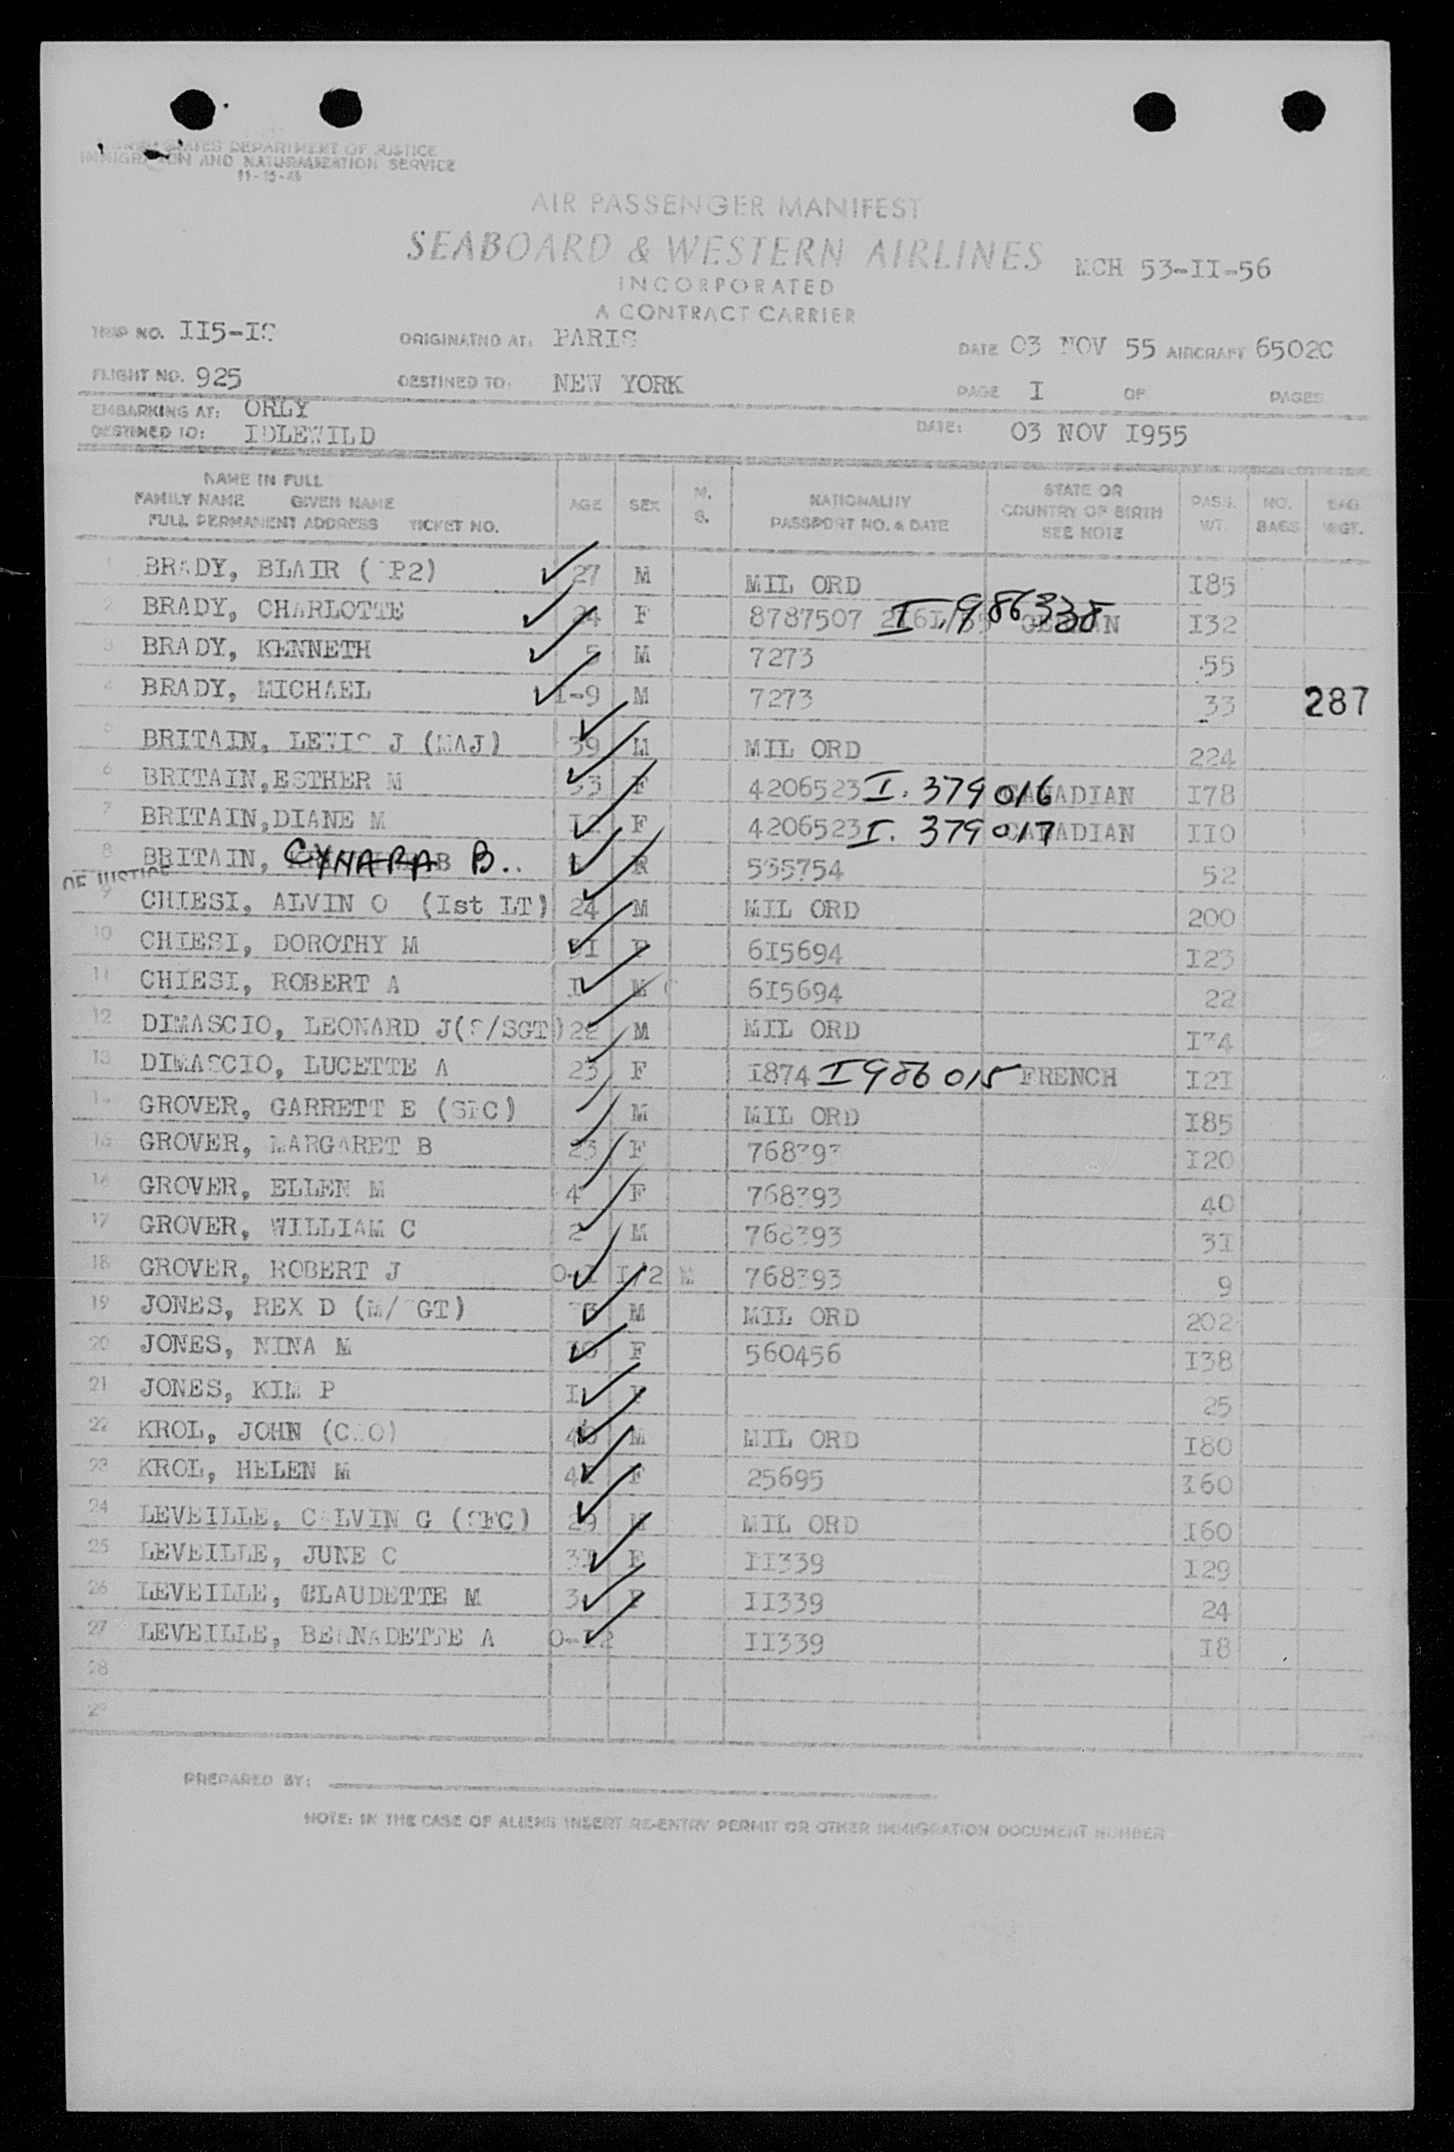 STATES DEPARTMENT OF JUSTICE
IMMIGRATION AND NATURALIZATION SERVICE
AIR PASSENGER MANIFEST
SEABOARD & WESTERN AIRLINES MCH 53-II-56
INCORPORATED
A CONTRACT CARRIER
TRIP NO. ORIGINATND AT: PARIS DATE 03 NOV 55 AIRCRAFT 6502C
FLIGHT NO. 925 DESTINED TO: NEW YORK PAGE I OF PAGES
EMBARKING AT: ORLY
DESTINED TO: IDLEWILD DATE: 03 NOV I955
NAME IN FULL
FAMILY NAME GIVEN NAME AGE SEX M. S. NATIONALITY STATE OR COUNTRY OF BIRTH PASS. WT. NO. BAGS BAG WGT.
FULL PERMANENT ADDRESS TICKET NO. PASSPORT NO. & DATE SEE NOTE
1 BRADY, BLAIR ( P2) 27 M MIL ORD I85
2 BRADY, CHARLOTTE 24 F 8787507 I.986338 I32
3 BRADY, KENNETH 5 M 7273 55
4 BRADY, MICHAEL I-9 M 7273 33 287
5 BRITAIN, LEWIS J (MAJ) 39 M MIL ORD 224
6 BRITAIN,ESTHER M 33 F 4206523 I. 379016 CANADIAN I78
7 BRITAIN,DIANE M F 4206523 I. 379017 CANADIAN II0
8 BRITAIN, CYNARA B.. 535754 52
OF JUSTICE
9 CHIESI, ALVIN O (Ist LT) 24 M MIL ORD 200
10 CHIESI, DOROTHY M F 6I5694 I23
11 CHIESI, ROBERT A I M 6I5694 22
12 DIMASCIO, LEONARD J(S/SGT) 28 M MIL ORD
13 DIMASCIO, LUCETTE A 23 F I874 I986015 FRENCH I2I
14 GROVER, GARRETT E (SFC) M MIL ORD I85
15 GROVER, MARGARET B 23 F 768393 I20
16 GROVER, ELLEN M 4 F 768393 40
17 GROVER, WILLIAM C 2 M 768393 3I
18 GROVER, ROBERT J 0-I I/2 M 768393 9
19 JONES, REX D (M/ GT) M MIL ORD 202
20 JONES, NINA M F 560456 I38
21 JONES, KIM P I F 25
22 KROL, JOHN (C O) M MIL ORD I80
23 KROL, HELEN M F 25695 I60
24 LEVEILLE, CALVIN G (SFC) 29 M MIL ORD I60
25 LEVEILLE, JUNE C 3I F II339 I29
26 LEVEILLE, CLAUDETTE M 3 F II339 24
27 LEVEILLE, BERNADETTE A 0-I2 II339 I8
28
29
PREPARED BY:
NOTE: IN THE CASE OF ALIENS INSERT RE-ENTRY PERMIT OR OTHER IMMIGRATION DOCUMENT NUMBER